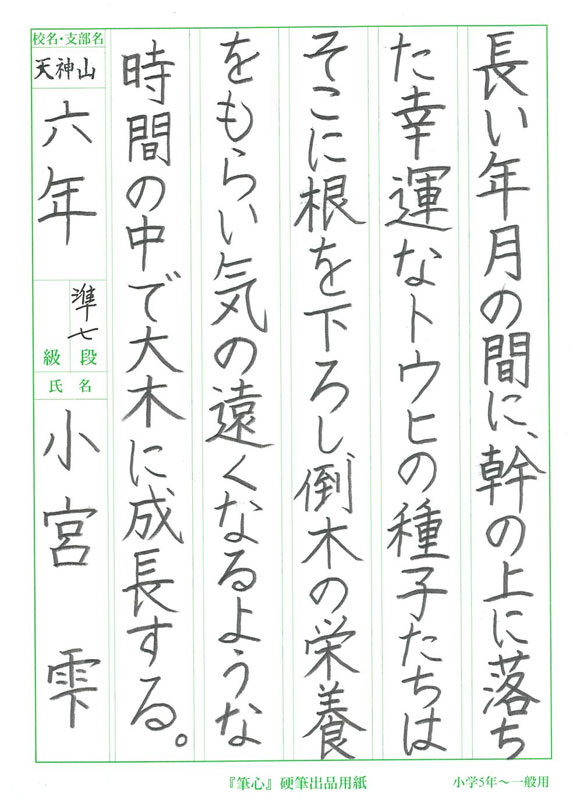 長い年月の間に、幹の上に落ち
た幸運なトウヒの種子たちは
そこに根を下ろし倒木の栄養
をもらい気の遠くなるような
時間の中で大木に成長する。
校名・支部名
天神山
六年
準七
段
級
氏名
小宮 雫
『筆心』硬筆出品用紙
小学5年～一般用